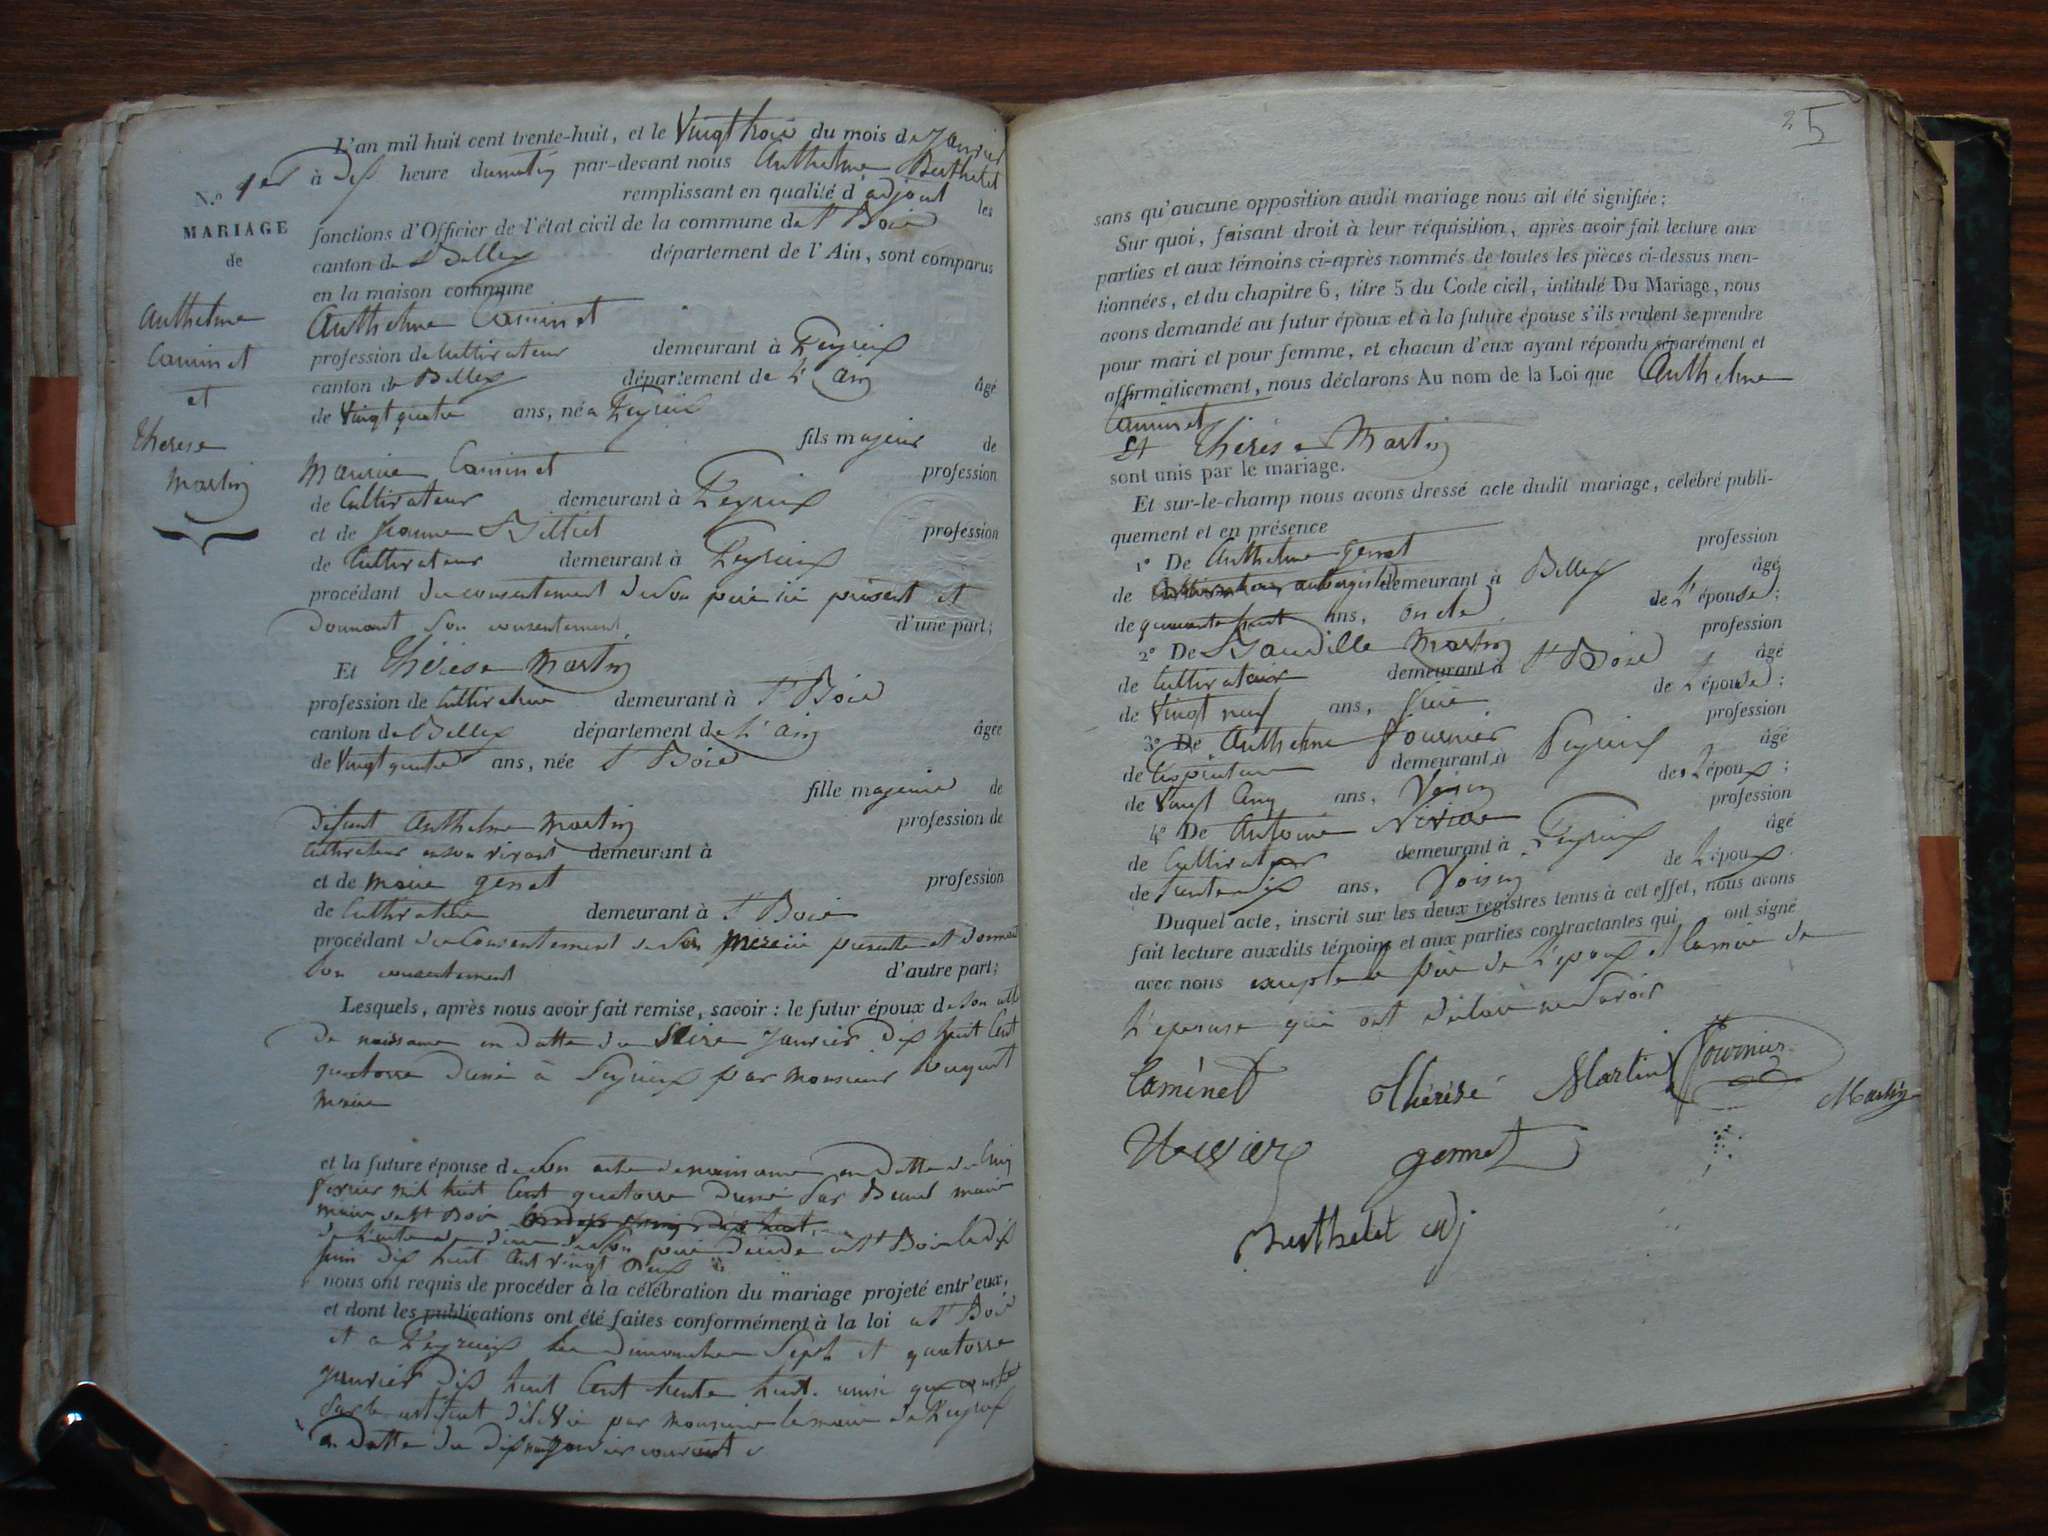 L'an mil huit cent trente-huit, et le Vingt trois du mois de Janvier
N.º 1er à dix heure du matin par-devant nous Anthelme Berthelet
remplissant en qualité d'adjoint les
MARIAGE
de
Anthelme
Caminet
et
Therese
Martin
fonctions d'Officier de l'état civil de la commune de St Bois
canton de Belley département de l'Ain, sont comparus
en la maison commune
Anthelme Caminet
profession de Cultivateur demeurant à Peyrieux
canton de Belley département de L'ain âgé
de Vingt quatre ans, né a Peyrieux
fils majeur de
Maurice Caminet profession
de Cultivateur demeurant à Peyrieux
et de Jeanne profession
de Cultivateur demeurant à Peyrieux
procédant du consentement de son père ici présent et
donnant son consentement d'une part;
Et Thérèse Martin
profession de Cultivatrice demeurant à St Bois
canton de Belley département de L'ain âgée
de Vingt quatre ans, née St Bois
fille majeure de
défunt Anthelme Martin profession de
Cultivateur en son vivant demeurant à
et de Marie gennet profession
de Cultivatrice demeurant à St Bois
procédant du Consentement de sa mère ici présente et donnant
son consentement d'autre part;
Lesquels, après nous avoir fait remise, savoir: le futur époux de son acte
de naissance en datte du Seize Janvier dix huit Cent
quatorze à Peyrieux par Monsieur
Maire
et la future épouse de son acte de naissance en datte du Cinq
fevrier mil huit Cent quatorze par maire
de St Bois
de son père décédé a St Bois le dix
juin dix huit Cent vingt Deux
nous ont requis de procéder à la célébration du mariage projeté entr'eux,
et dont les publications ont été faites conformément à la loi a St Bois
et a Peyrieux les Dimanches Sept et quatorze
Janvier dix huit Cent trente huit. ainsi que conste
par le certificat délivré par Monsieur le maire de Peyrieux
en datte du dix neuf Janvier courant
25
sans qu'aucune opposition audit mariage nous ait été signifiée;
Sur quoi, faisant droit à leur réquisition, après avoir fait lecture aux
parties et aux témoins ci-après nommés de toutes les pièces ci-dessus men-
tionnées, et du chapitre 6, titre 5 du Code civil, intitulé Du Mariage, nous
avons demandé au futur époux et à la future épouse s'ils veulent se prendre
pour mari et pour femme, et chacun d'eux ayant répondu séparément et
affirmativement, nous déclarons Au nom de la Loi que Anthelme
Caminet
Et Thérèse Martin
sont unis par le mariage.
Et sur-le-champ nous avons dressé acte dudit mariage, célébré publi-
quement et en présence
1º De Anthelme gennet profession
de aubergiste demeurant à Belley âgé
de quarante huit ans, oncle de L'épouse;
2º De Martin profession
de Cultivateur demeurant à St Bois âgé
de Vingt neuf ans, frère de L'épouse;
3º De Anthelme fournier profession
de demeurant à Peyrieux âgé
de Vingt Cinq ans, Voisin de L'époux;
4º De Antoine profession
de Cultivateur demeurant à Peyrieux âgé
de trente Six ans, Voisin de L'époux.
Duquel acte, inscrit sur les deux registres tenus à cet effet, nous avons
fait lecture auxdits témoins et aux parties contractantes qui ont signé
avec nous excepté le père de l'époux et la mère de
L'epouse qui ont déclaré ne Savoir
Caminet Thérèse Martin fournier
Martin
gennet
Berthelet adj